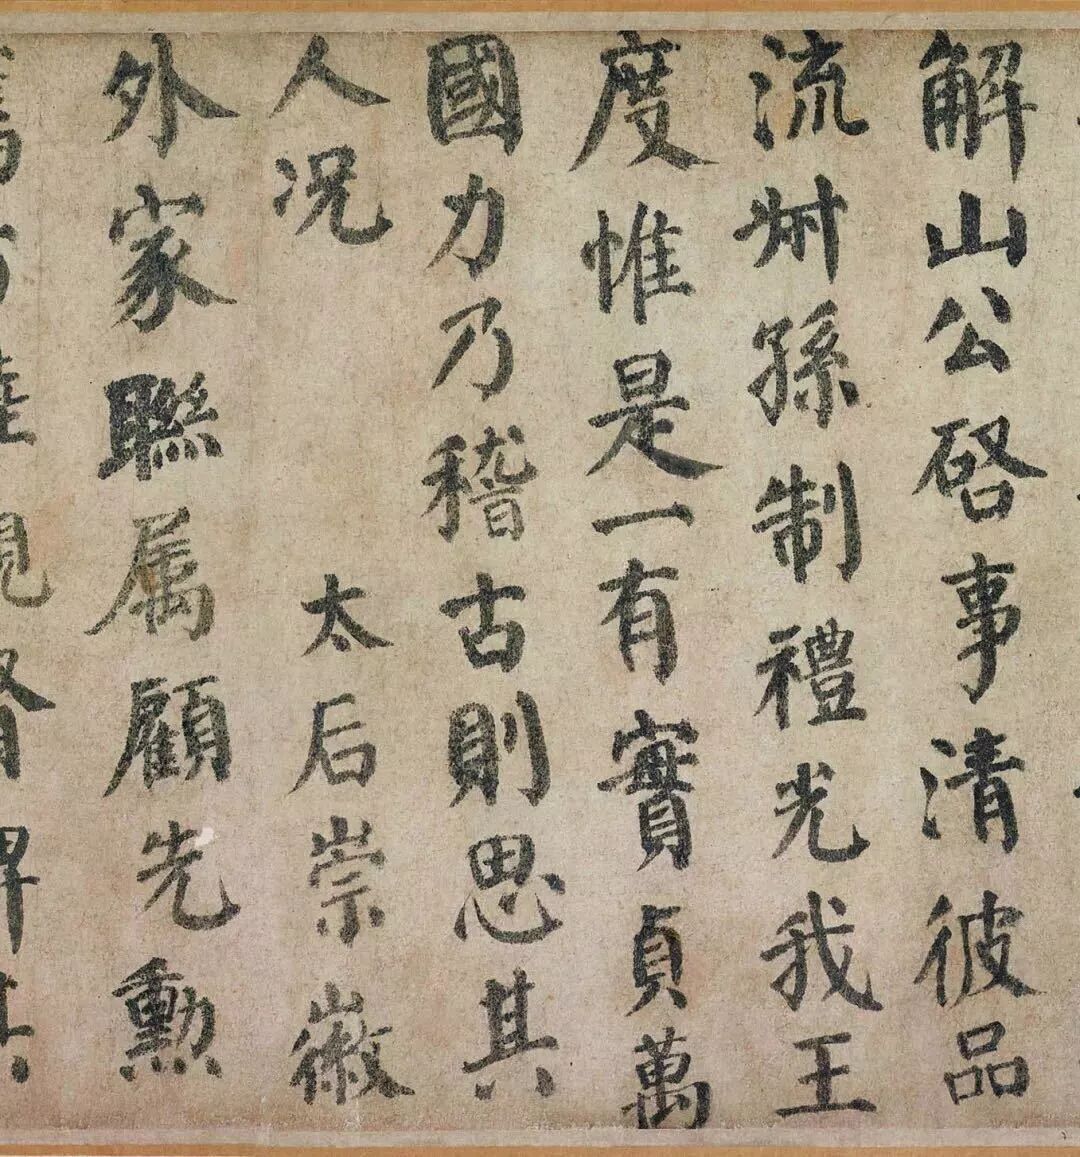 解山公啓事清彼品
流升孫制禮光我王
度惟是一有實貞萬
國力乃稽古則思其
人况 太后崇徽
外家聯属顧先勲